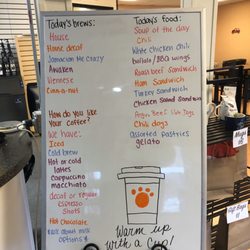 Today's brews:
House
House decaf
Jamacian me crazy
Awaken
Viennese
Cinn-a-nut
How do you like
Your Coffee?
We have:
Iced
Cold brew
Hot or cold
lattes
cappuccino
macchiato
decaf or regular
Espresso
Shots
Hot Chocolate
Ask about milk
options
Today's food:
Soup of the day
Chili
White chicken chili
buffalo/BBQ wings
Roast beef Sandwich
Ham Sandwich
Turkey Sandwich
Chicken Salad Sandwich
Angus Beef Hot Dogs
Chili dogs
Assorted pastries
gelato
Warm up
with a Cup!